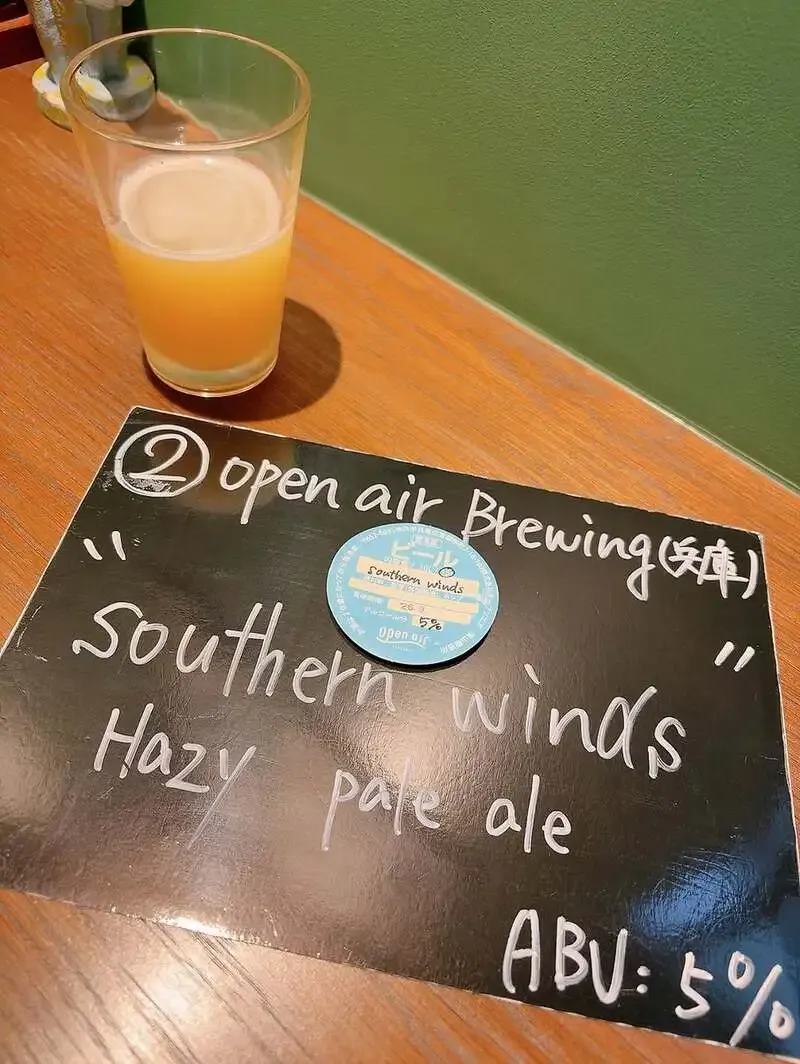 ② open air Brewing(兵庫)
" southern winds "
Hazy pale ale
ABV: 5%
ビール
southern winds
5%
open air